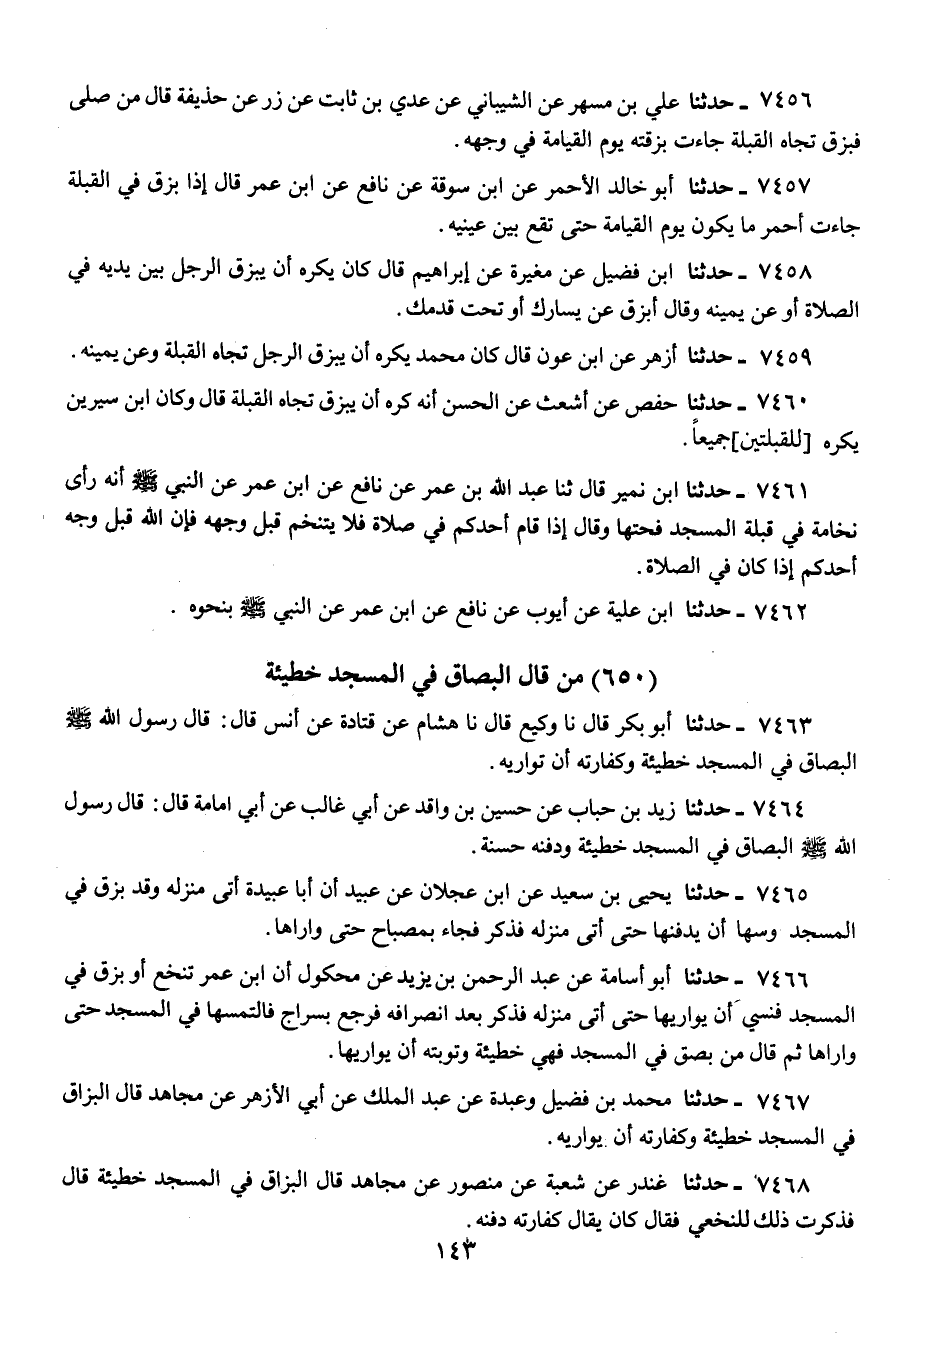 ٧٤٥٦ ـ حدثنا علي بن مسهر عن الشيباني عن عدي بن ثابت عن زر عن حذيفة قال من صلى
فبزق تجاه القبلة جاءت بزقته يوم القيامة في وجهه .
٧٤٥٧ ـ حدثنا أبو خالد الأحمر عن ابن سوقة عن نافع عن ابن عمر قال إذا بزق في القبلة
جاءت أحمر ما يكون يوم القيامة حتى تقع بين عينيه .
٧٤٥٨ ـ حدثنا ابن فضيل عن مغيرة عن إبراهيم قال كان يكره أن يبزق الرجل بين يديه في
الصلاة أو عن يمينه وقال أبزق عن يسارك أو تحت قدمك .
٧٤٥٩ ـ حدثنا أزهر عن ابن عون قال كان محمد يكره أن يبزق الرجل تجاه القبلة وعن يمينه .
٧٤٦٠ ـ حدثنا حفص عن أشعث عن الحسن أنه كره أن يبزق تجاه القبلة قال وكان ابن سيرين
يكره [للقبلتين] جميعاً .
٧٤٦١ ـ حدثنا ابن نمير قال ثنا عبد الله بن عمر عن نافع عن ابن عمر عن النبي ﷺ أنه رأى
نخامة في قبلة المسجد فحتها وقال إذا قام أحدكم في صلاة فلا يتنخم قبل وجهه فإن الله قبل وجه
أحدكم إذا كان في الصلاة .
٧٤٦٢ ـ حدثنا ابن علية عن أيوب عن نافع عن ابن عمر عن النبي ﷺ بنحوه .
(٦٥٠) من قال البصاق في المسجد خطيئة
٧٤٦٣ ـ حدثنا أبو بكر قال نا وكيع قال نا هشام عن قتادة عن أنس قال : قال رسول الله ﷺ
البصاق في المسجد خطيئة وكفارته أن تواريه .
٧٤٦٤ ـ حدثنا زيد بن حباب عن حسين بن واقد عن أبي غالب عن أبي امامة قال : قال رسول
الله ﷺ البصاق في المسجد خطيئة ودفنه حسنة .
٧٤٦٥ ـ حدثنا يحيى بن سعيد عن ابن عجلان عن عبيد أن أبا عبيدة أتى منزله وقد بزق في
المسجد وسها أن يدفنها حتى أتى منزله فذكر فجاء بمصباح حتى واراها .
٧٤٦٦ ـ حدثنا أبو أسامة عن عبد الرحمن بن يزيد عن محكول أن ابن عمر تنخع أو بزق في
المسجد فنسي أن يواريها حتى أتى منزله فذكر بعد انصرافه فرجع بسراج فالتمسها في المسجد حتى
واراها ثم قال من بصق في المسجد فهي خطيئة وتوبته أن يواريها .
٧٤٦٧ ـ حدثنا محمد بن فضيل وعبدة عن عبد الملك عن أبي الأزهر عن مجاهد قال البزاق
في المسجد خطيئة وكفارته أن يواريه .
٧٤٦٨ ـ حدثنا غندر عن شعبة عن منصور عن مجاهد قال البزاق في المسجد خطيئة قال
فذكرت ذلك للنخعي فقال كان يقال كفارته دفنه .
١٤٣